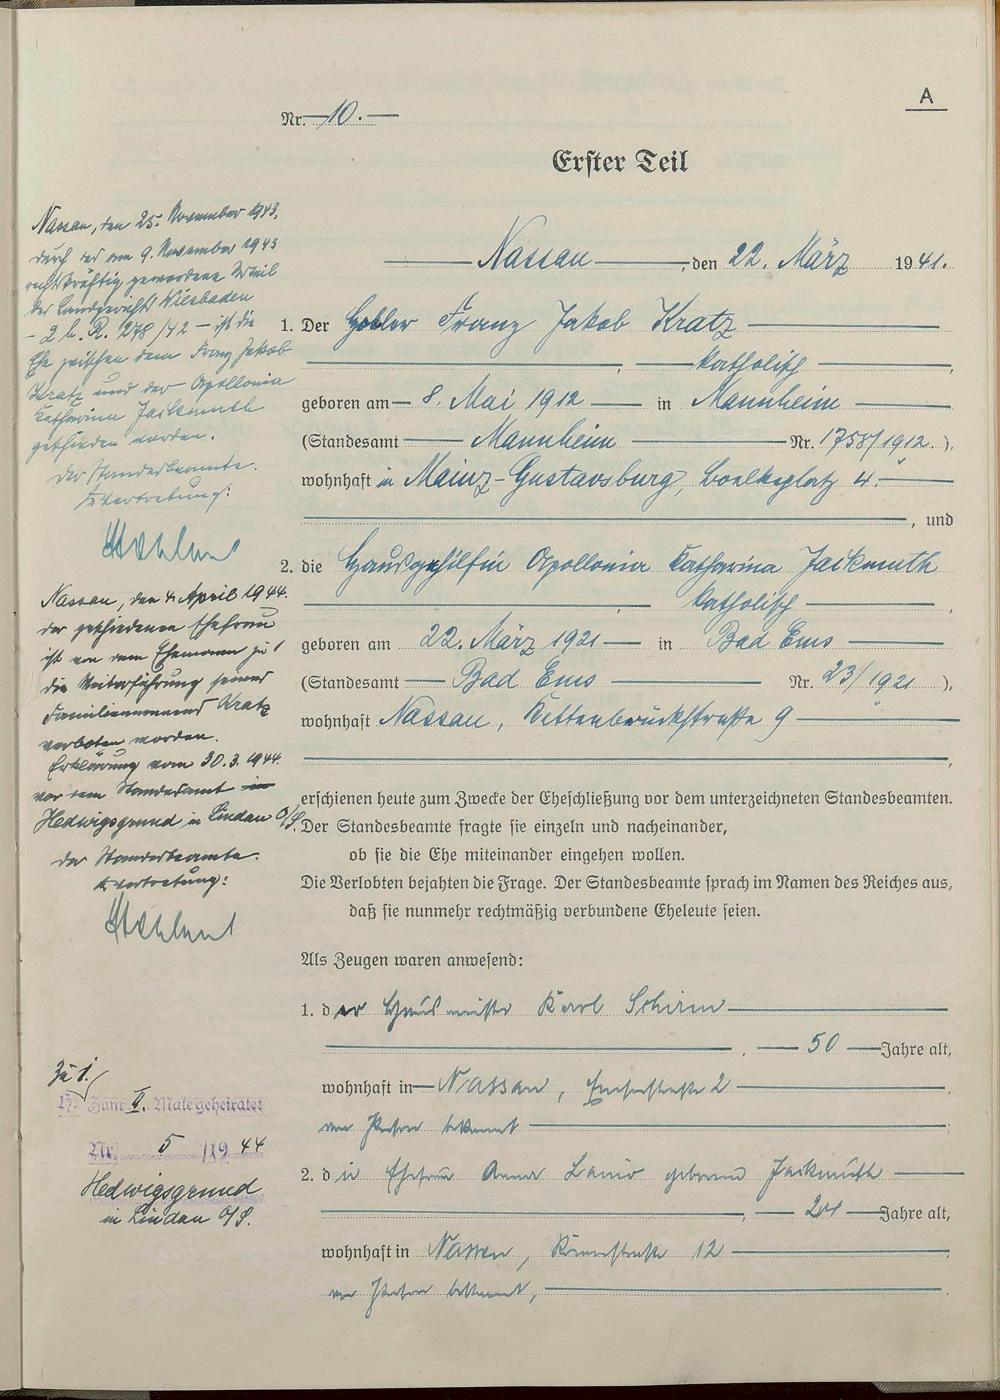 A
Nr. 10.
Erster Teil
Nassau, den 22. März 1941.
1. Der Hobler Franz Jakob Kratz
, katholisch,
geboren am 8. Mai 1912 in Mannheim
(Standesamt Mannheim Nr. 1758/1912.),
wohnhaft in Mainz-Gustavsburg, Boelkeplatz 4.
, und
2. die Hausgehilfin Apollonia Katharina Jackmuth
, katholisch,
geboren am 22. März 1921 in Bad Ems
(Standesamt Bad Ems Nr. 23/1921),
wohnhaft Nassau, Kettenbrückstraße 9
,
erschienen heute zum Zwecke der Eheschließung vor dem unterzeichneten Standesbeamten.
Der Standesbeamte fragte sie einzeln und nacheinander,
ob sie die Ehe miteinander eingehen wollen.
Die Verlobten bejahten die Frage. Der Standesbeamte sprach im Namen des Reiches aus,
daß sie nunmehr rechtmäßig verbundene Eheleute seien.
Als Zeugen waren anwesend:
1. der Hausmeister Karl Schirm
, 50 Jahre alt,
wohnhaft in Nassau, Emserstraße 2
von Person bekannt;
2. die Ehefrau Anna geborene Jackmuth
, 24 Jahre alt,
wohnhaft in Nassau, Römerstraße 12
von Person bekannt,
Nassau, den 25. November 1943.
durch das am 9. November 1943
rechtskräftig gewordene Urteil
des Landgerichts Wiesbaden
- 2 b. R. 278/42 - ist die
Ehe zwischen dem Franz Jakob
Kratz und der Apollonia
Katharina Jackmuth
geschieden worden.
Der Standesbeamte.
In Vertretung:
Nassau, den 4. April 1944.
der geschiedenen Ehefrau
ist von dem Ehemann zu 1
die Weiterführung seines
Familiennamens Kratz
verboten worden.
Erklärung vom 30.3.1944.
vor dem Standesamt in
Hedwigsgrund in Lindau O/S.
Der Standesbeamte.
In Vertretung:
Zu 1.
Zum II. Male geheiratet
Nr. 5 /1944
Hedwigsgrund
in Lindau O/S.